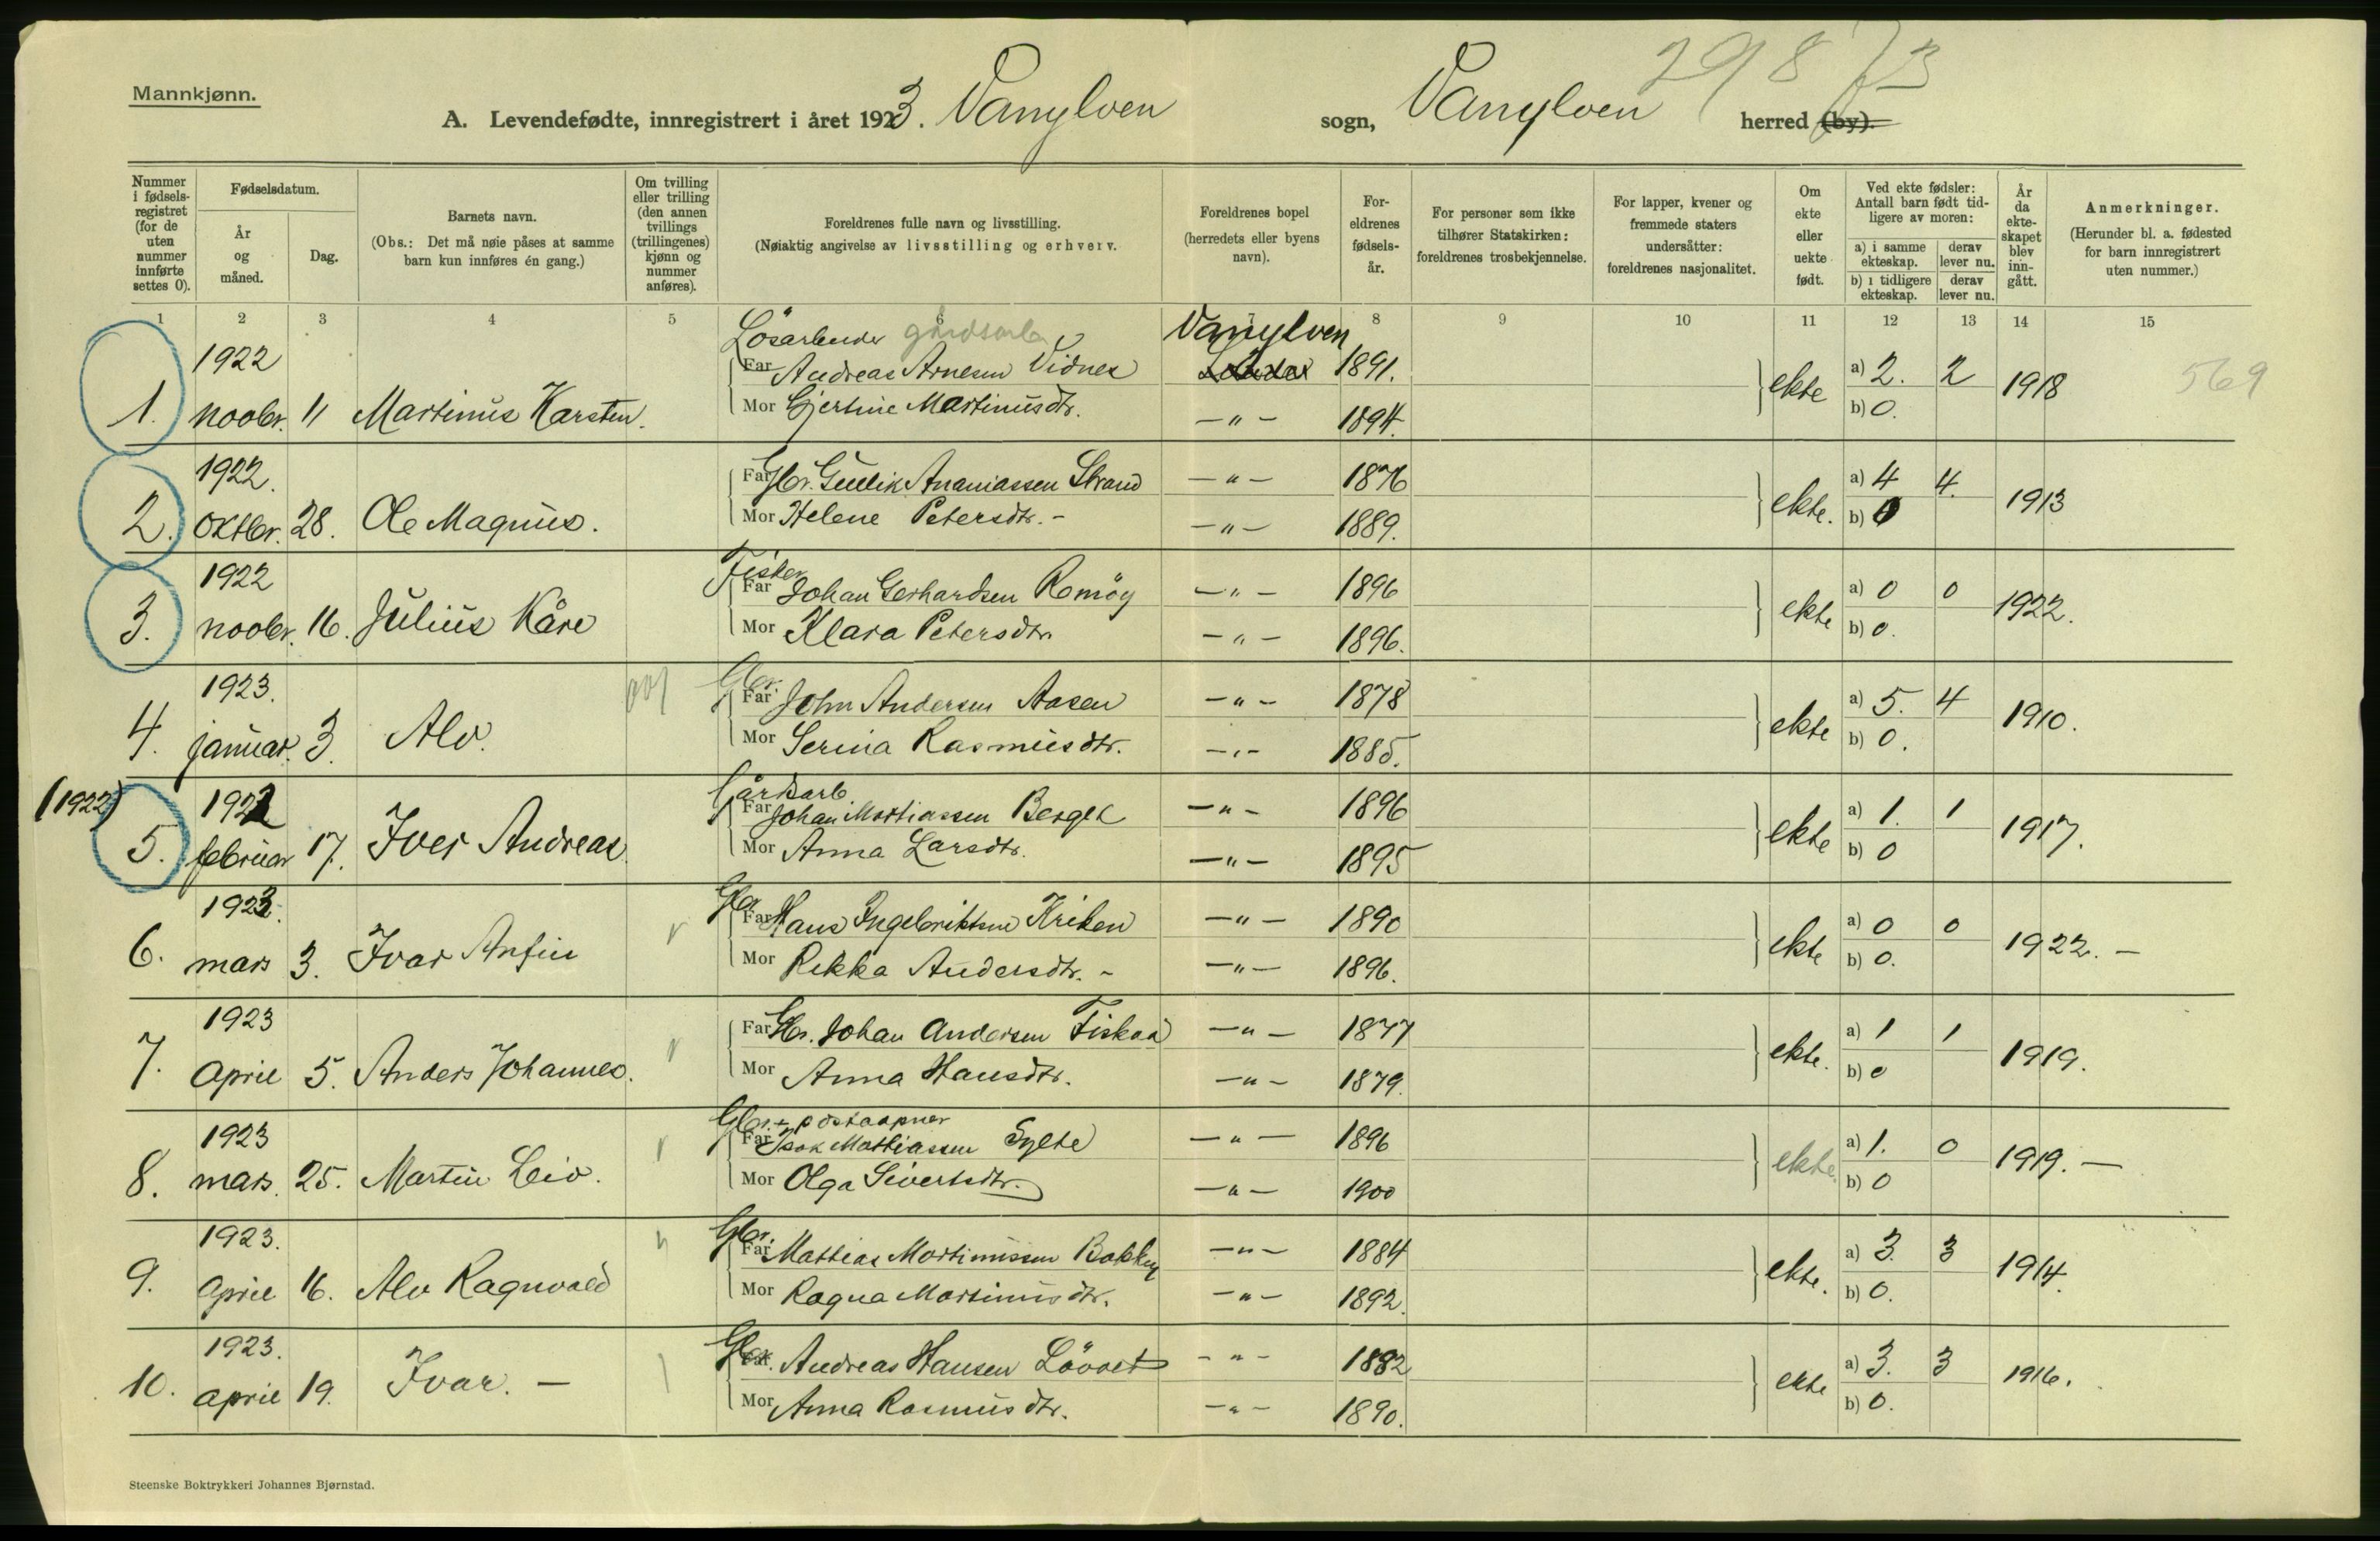 29873
Mannkjønn.
A. Levendefødte, innregistrert i året 1923. Vanylven sogn, Vanylven herred (by).
Nummer i fødselsregistret (for de uten nummer innførte settes 0).
Fødselsdatum.
År og måned.
Dag.
Barnets navn.
(Obs.: Det må nøie påses at samme barn kun innføres én gang.)
Om tvilling eller trilling (den annen tvillings (trillingenes) kjønn og nummer anføres).
Foreldrenes fulle navn og livsstilling.
(Nøiaktig angivelse av livsstilling og erhverv.
Foreldrenes bopel (herredets eller byens navn).
Foreldrenes fødselsår.
For personer som ikke tilhører Statskirken: foreldrenes trosbekjennelse.
For lapper, kvener og fremmede staters undersåtter: foreldrenes nasjonalitet.
Om ekte eller uekte født.
Ved ekte fødsler: Antall barn født tidligere av moren:
a) i samme ekteskap. derav lever nu.
b) i tidligere ekteskap. derav lever nu.
År da ekteskapet blev inngått.
Anmerkninger.
(Herunder bl. a. fødested for barn innregistrert uten nummer.)
1 2 3 4 5 6 7 8 9 10 11 12 13 14 15
Lösarbeider gårdsarb Vanylven
1922 Far Andreas Arnesen Vidnes 1891. a) 2. 2 569
1. novbr. 11 Martinus Karsten. Mor Gjertine Martinusdtr. —"— 1894. ekte b) 0. 1918
1922. Far Gbr. Gullik Ananiassen Strand —"— 1876 a) 4 4.
2. oktbr. 28. Ole Magnus. Mor Helene Petersdtr. — —"— 1889. ekte. b) 0 1913
Fisker
1922 Far Johan Gerhardsen Romöy —"— 1896 a) 0 0
3. novbr. 16. Julius Kåre Mor Klara Petersdtr. —"— 1896. ekte b) 0. 1922.
Gbr.
1923. Far John Andersen Aasen —"— 1878 a) 5. 4
4. januar. 3. Alv. Mor Serina Rasmusdtr. —"— 1885. ekte b) 0. 1910.
Gårdsarb
(1922) 1922 Far Johan Mathiassen Berget —"— 1896 a) 1. 1
5. februar 17. Iver Andreas Mor Anna Larsdtr. —"— 1895 ekte b) 0 1917.
Gbr
1923. Far Hans Ingebriktsen Kriken —"— 1890 a) 0 0
6. mars 3. Ivar Anfin Mor Rikka Andersdtr. — —"— 1896. ekte b) 0. 1922. —
1923 Far Gbr. Johan Andersen Fiskaa —"— 1877 a) 1 1
7. April 5. Anders Johannes. Mor Anna Hansdtr. —"— 1879. ekte. b) 0 1919.
Gbr. + postaapner
1923 Far Isak Mathiassen Sylte —"— 1896 a) 1. 0
8. mars. 25. Martin Leiv. Mor Olga Sivertsdtr. —"— 1900 ekte. b) 0 1919. —
Gbr.
1923. Far Mathias Martinussen Bakken —"— 1884 a) 3. 3
9. April 16. Alv Ragnvald Mor Ragna Martinusdtr. —"— 1892. ekte. b) 0. 1914.
Gbr.
1923. Far. Andreas Hansen Lövoet —"— 1882 a) 3. 3
10. april 19. Ivar. — Mor Anna Rasmusdtr. —"— 1890. ekte b) 0. 1916.
Steenske Boktrykkeri Johannes Bjørnstad.